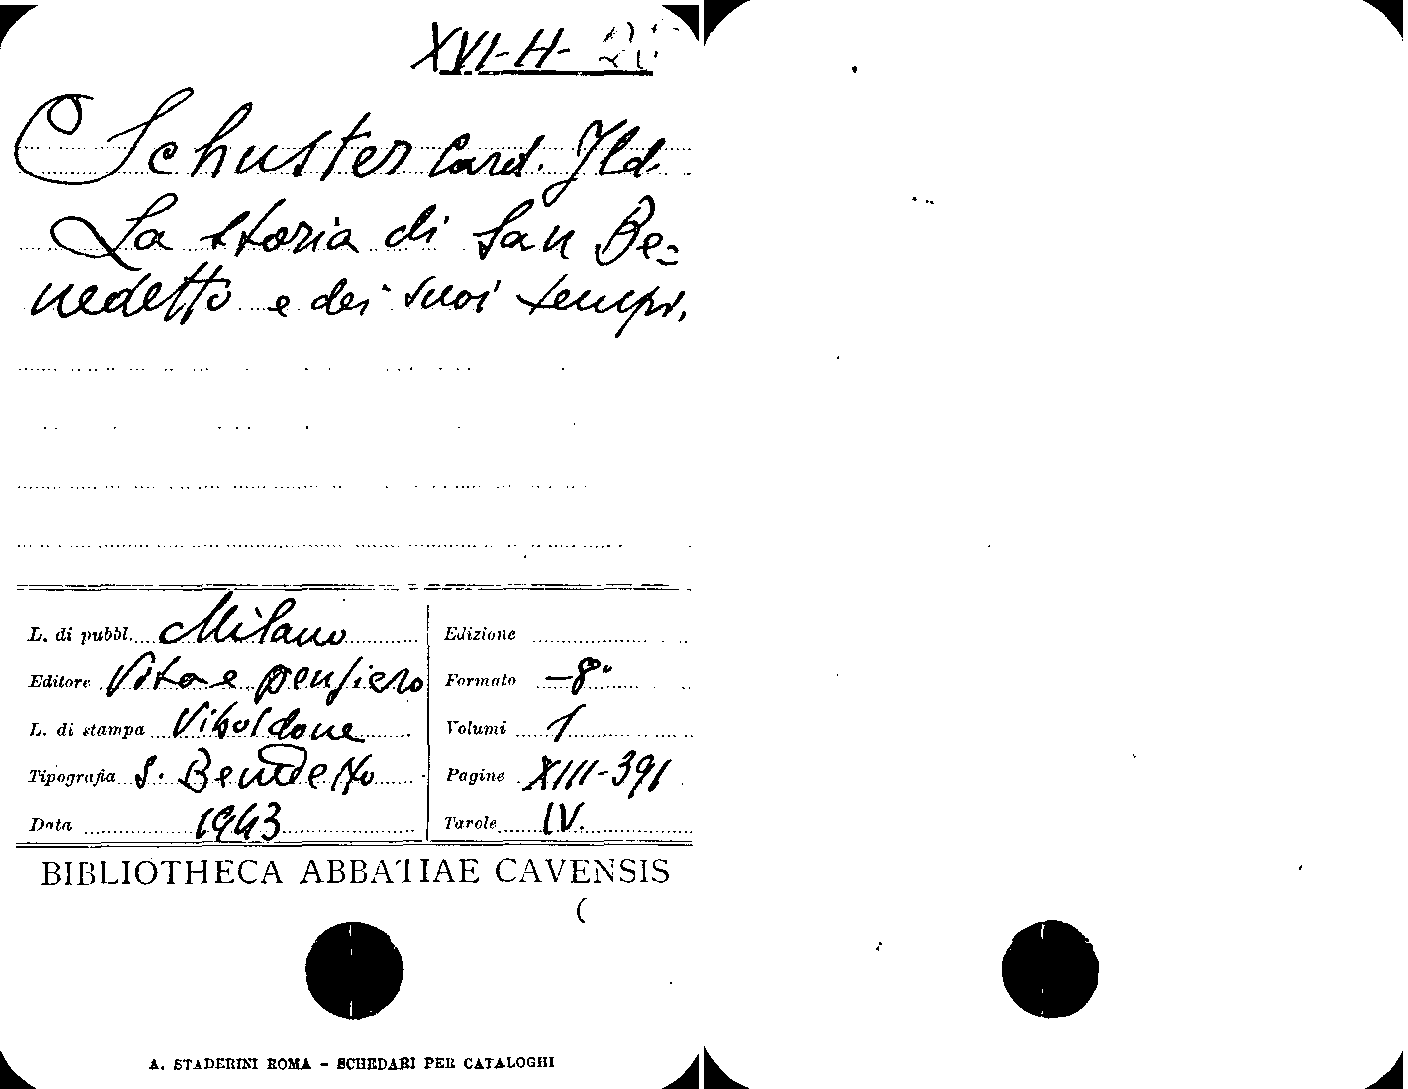 XVI-H-
Schuster Card. Ild.
La storia di San Be=
nedetto e dei suoi tempi.
L. di pubbl. Milano
Editore Vita e pensiero
L. di stampa Viboldone
Tipografia S. Benedetto
Data 1943
Edizione
Formato -8°
Volumi 1
Pagine XIII-391
Tavole IV.
BIBLIOTHECA ABBATIAE CAVENSIS
A. STADERINI ROMA - SCHEDARI PER CATALOGHI